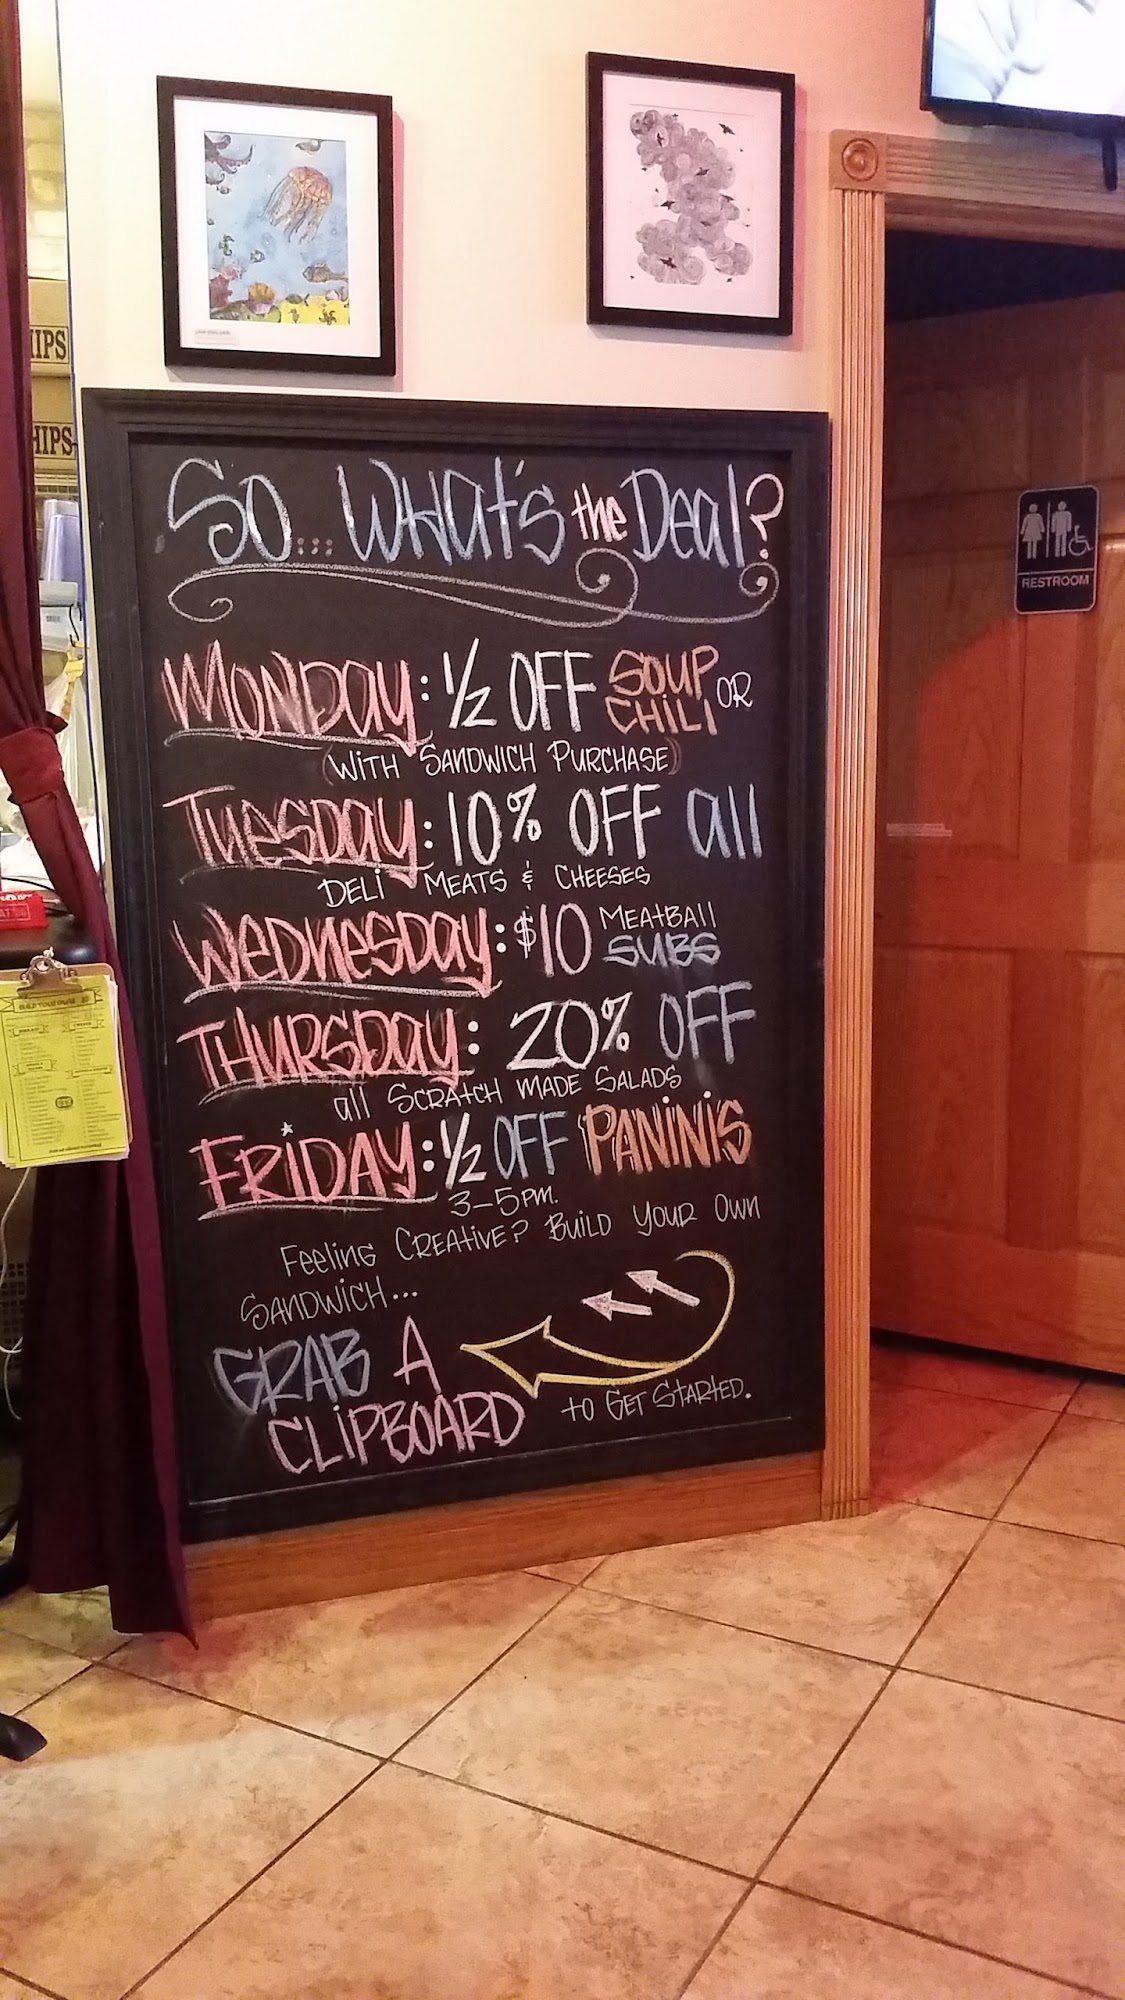 IPS
HIPS
So... What's the Deal?
RESTROOM
Monday: 1/2 OFF SOUP OR CHILI
(WITH SANDWICH PURCHASE)
Tuesday: 10% OFF all
DELI MEATS & CHEESES
WEDNESDAY: $10 MEATBALL SUBS
THURSDAY: 20% OFF
all SCRATCH MADE SALADS
FRIDAY: 1/2 OFF PANINIS
3-5PM.
Feeling Creative? Build Your Own
SANDWICH...
GRAB A
CLIPBOARD
to Get Started.
BUILD YOUR OWN